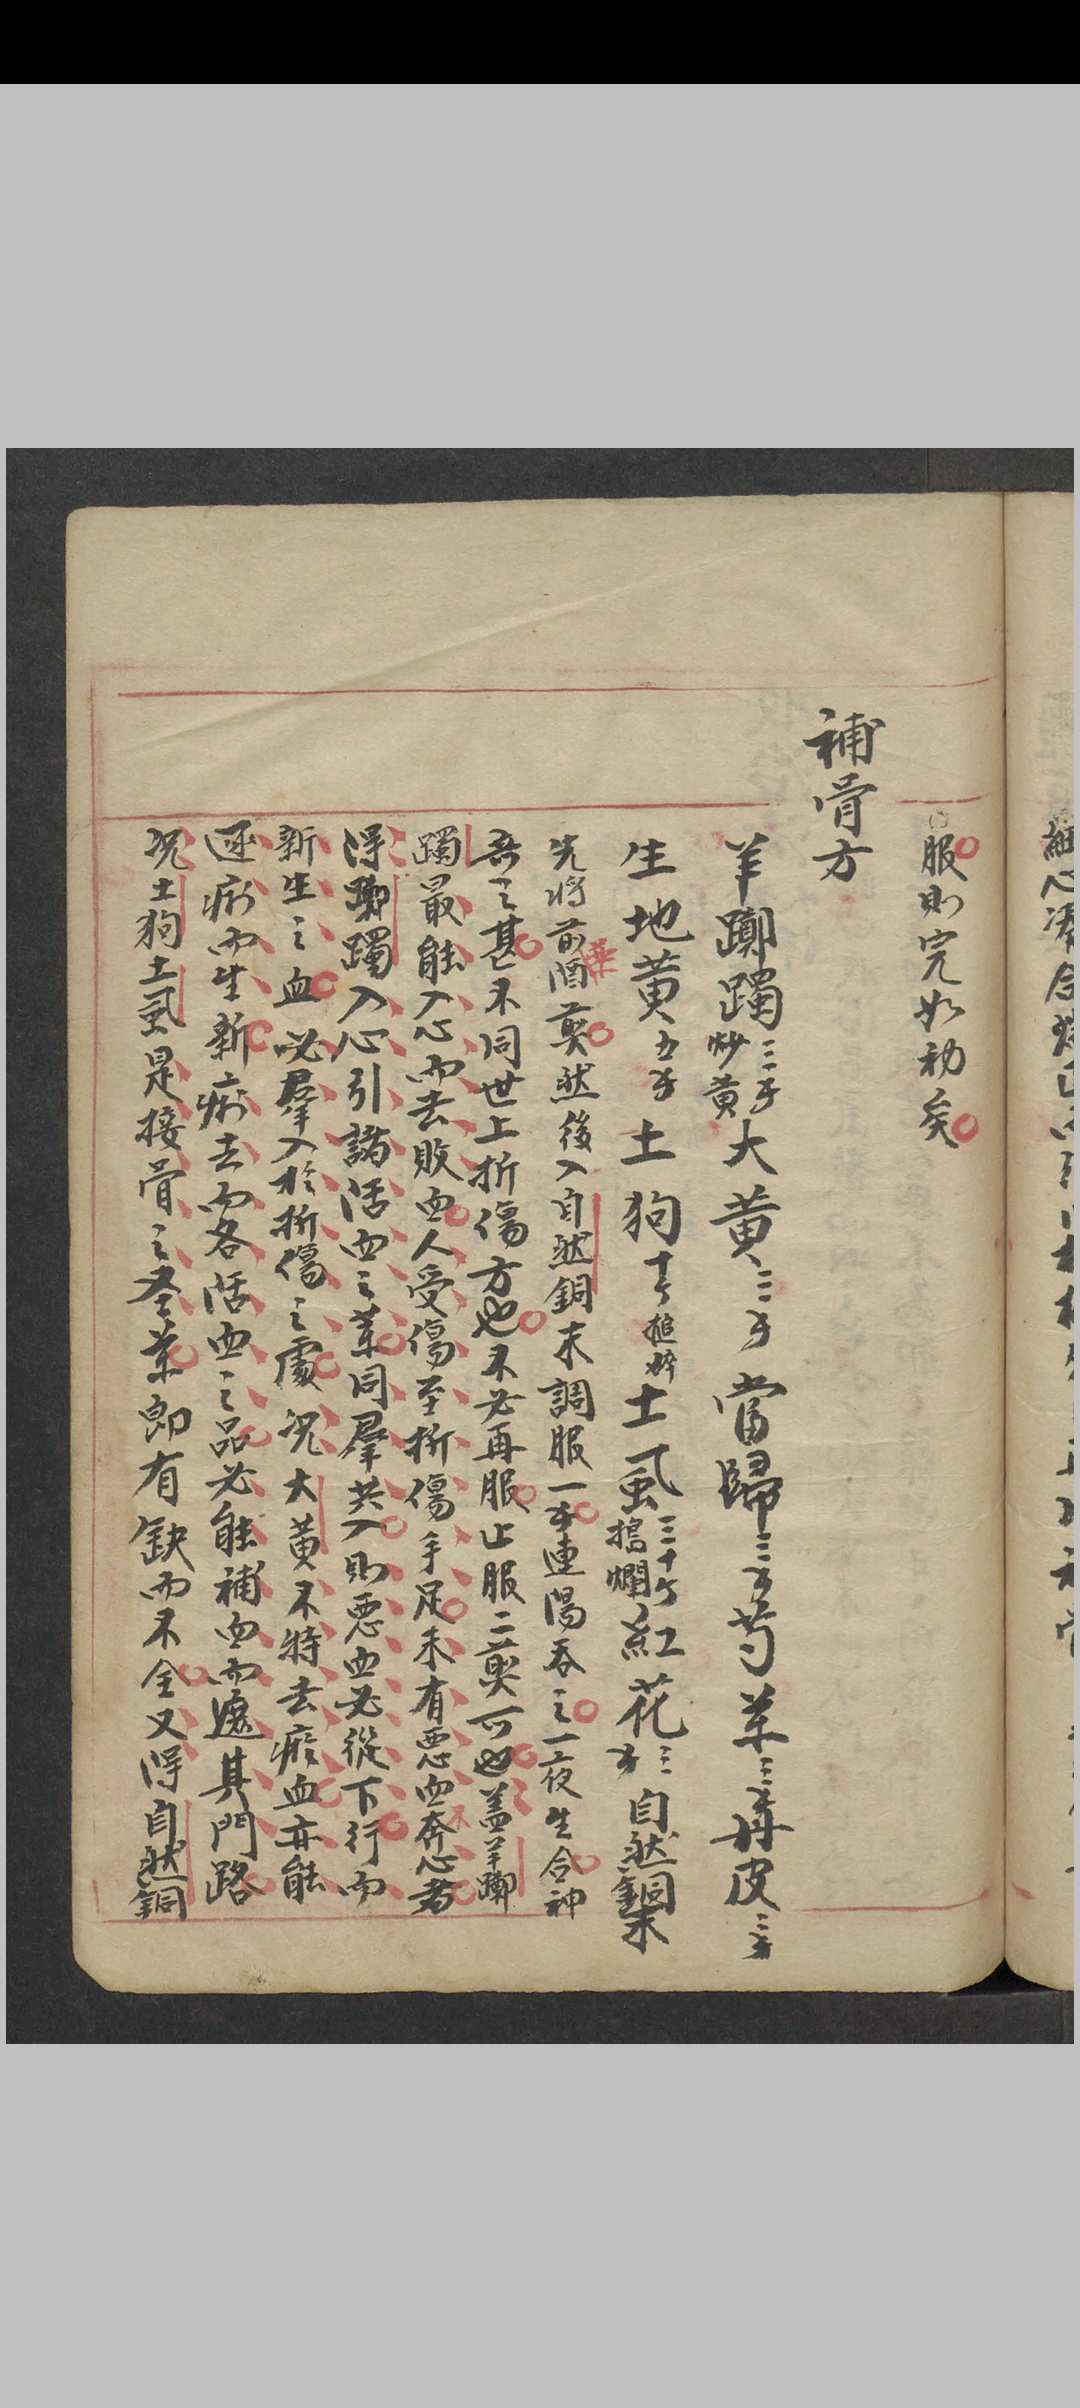 服則完如初矣
補骨方
羊躑躅三錢炒黃大黃三錢當歸三錢芍藥三錢丹皮三錢
生地黃五錢土狗十個搥碎土虱三十個搗爛紅花三錢自然銅末
先將前藥酒煎然後入自然銅末調服一錢連湯吞之一夜生合神
奇之甚不同世上折傷方也不必再服止服二煎可也蓋羊躑
躅最能入心而去敗血人受傷至折傷手足未有惡血不奔心者
得躑躅入心引諸活血之藥同群共入則惡血必從下行而
新生之血必群入於折傷之處況大黃不特去瘀血亦能
逐瘀而生新瘀去而各活血之品必能補血而遶其門路
況土狗土虱是接骨之聖藥即有缺而不全又得自然銅